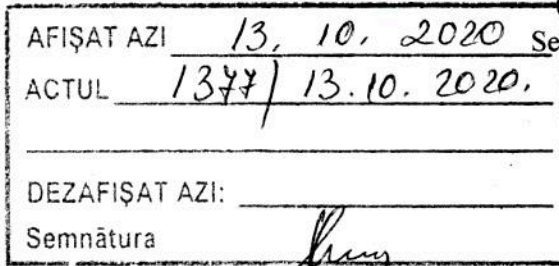 AFIȘAT AZI 13. 10. 2020 Se
ACTUL 1377 / 13.10. 2020.
DEZAFIȘAT AZI:
Semnătura